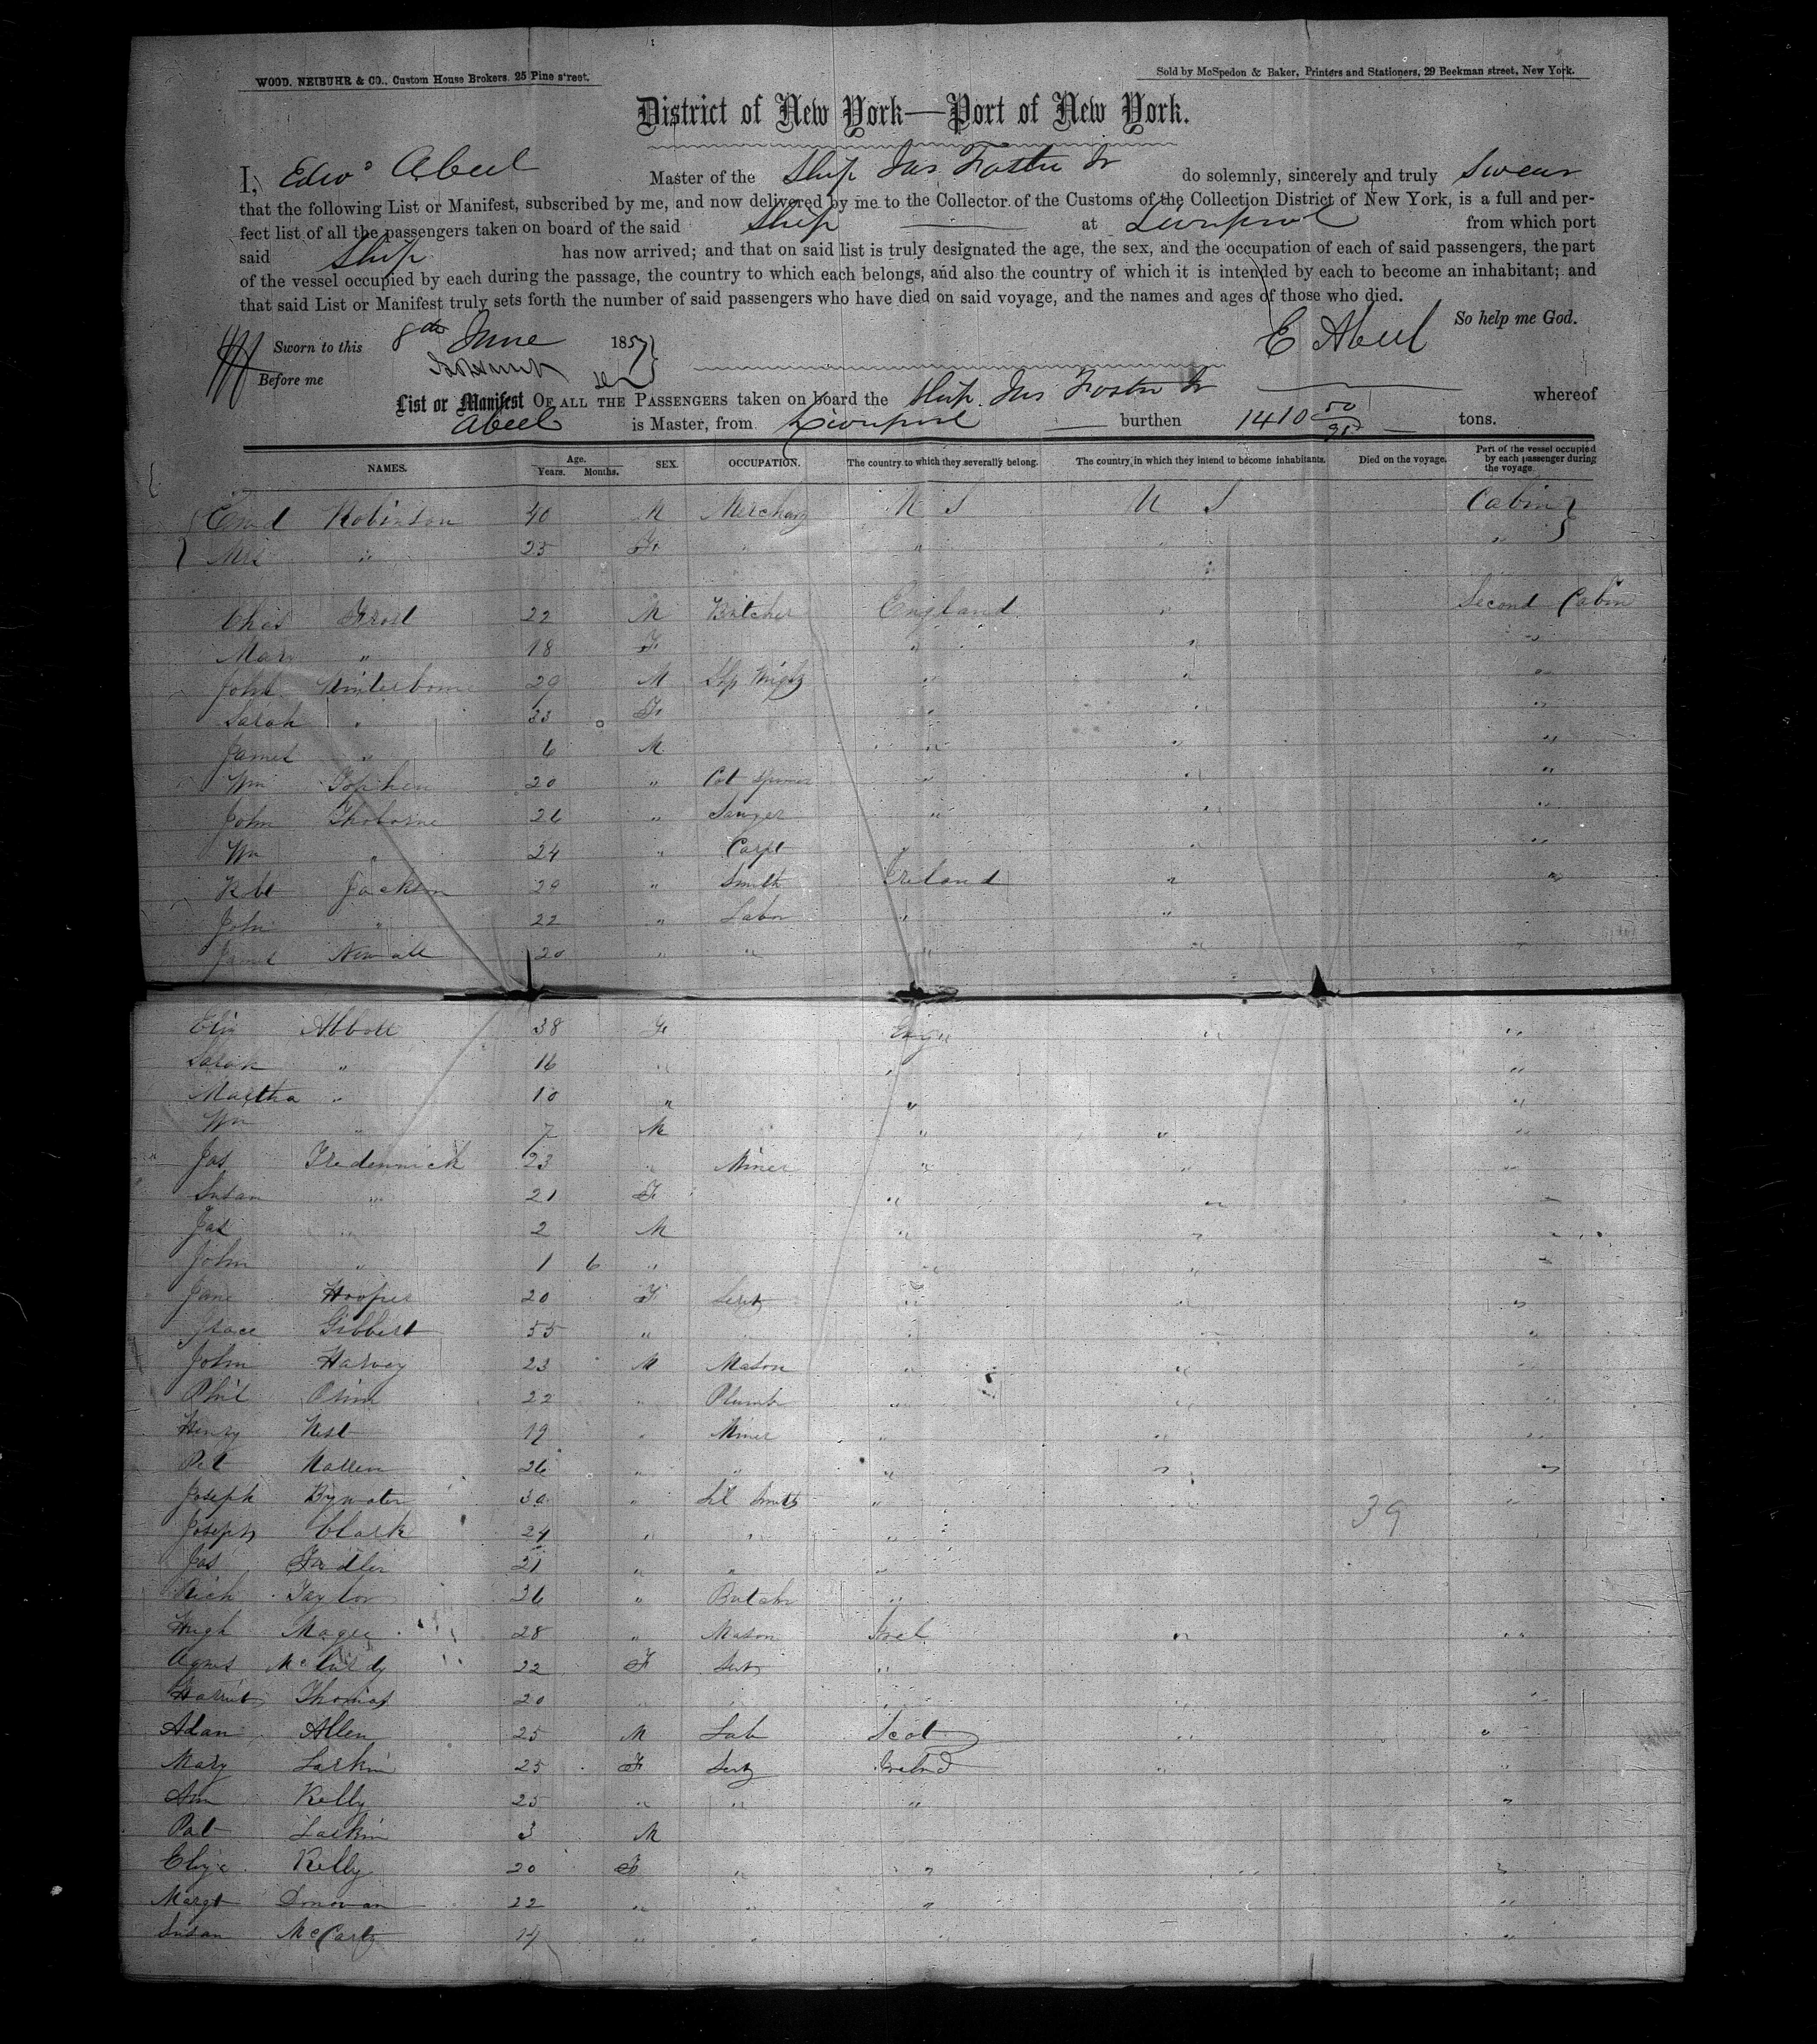 WOOD. NEIBUHR & CO., Custom House Brokers. 25 Pine street.
Sold by McSpedon & Baker, Printers and Stationers, 29 Beekman street, New York.
District of New York—Port of New York.
I, Edwd Abeel Master of the Ship Jas Foster Jr do solemnly, sincerely and truly swear
that the following List or Manifest, subscribed by me, and now delivered by me to the Collector of the Customs of the Collection District of New York, is a full and per-
fect list of all the passengers taken on board of the said Ship at Liverpool from which port
said Ship has now arrived; and that on said list is truly designated the age, the sex, and the occupation of each of said passengers, the part
of the vessel occupied by each during the passage, the country to which each belongs, and also the country of which it is intended by each to become an inhabitant; and
that said List or Manifest truly sets forth the number of said passengers who have died on said voyage, and the names and ages of those who died.
So help me God.
Sworn to this 8th June 1857 E Abeel
Before me
List or Manifest OF ALL THE PASSENGERS taken on board the Ship Jas Foster Jr whereof
Abeel is Master, from Liverpool burthen 1410 50/95 tons.
NAMES. Age. Years. Months. SEX. OCCUPATION. The country to which they severally belong. The country in which they intend to become inhabitants. Died on the voyage. Part of the vessel occupied by each passenger during the voyage.
Robinson 40 M Merchant U S U S Cabin
Mrs " 25 F " " " "
Chas Frost 22 M Butcher England " Second Cabin
Mary " 18 F " " "
John Winterborne 29 M Ship Wright " " "
Sarah " 33 F " " "
James " 6 M " " "
Wm 20 " Cot Spinner " " "
John 26 " " " "
Wm " 24 " Carpt " " "
Robt Jackson 29 " Smith Ireland " "
John " 22 " Labor " " "
James Newall 20 " " " " "
Eliz Abbott 38 F " "
Sarah " 16 " " "
Martha " 10 " " "
Wm " 7 M " " "
Jas Tredennick 23 " Miner " " "
Susan " 21 F " " "
Jas " 2 M " " "
John " 1 6 " " " "
Jane Hooper 20 F Servt " " "
Grace Gibbert 55 " " " "
John Harvey 23 M Mason " " "
Phil 22 " Plumb " " "
Henry West 19 " Miner " " "
Pat 26 " " " " "
Joseph Bywater 30 " Smith " "
39
Joseph Clark 24 " " "
Jas 21 " " "
Rich Taylor 36 " Butchr "
Hugh Magee 28 " Mason Irel " "
Agnes 22 F Servt "
Harriet Thomas 20 " " " " "
Adam Allen 25 M Lab Scot " "
Mary Larkin 25 F Servt Ireland " "
Ann Kelly 25 " " " "
Pat Larkin 3 M
Eliza Kelly 20 F " " " "
Margt Donovan 22 " " " "
Susan McCarty 14 " " " "